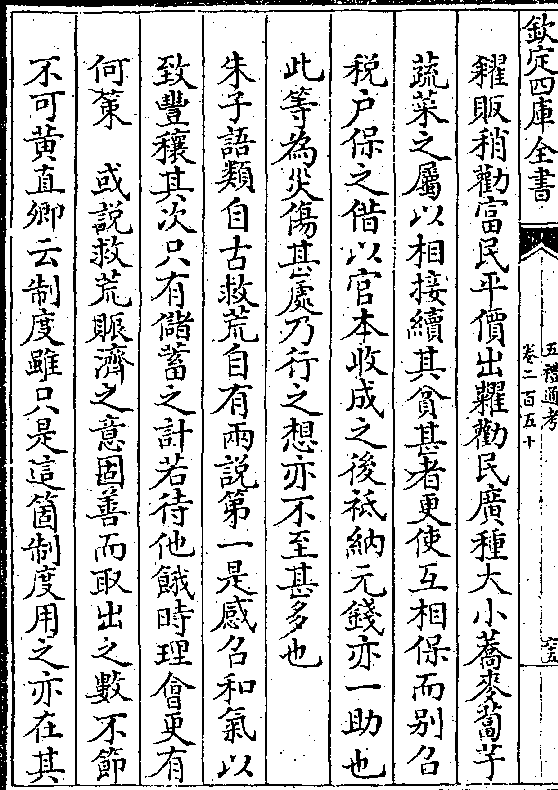 欽定四庫全書
五禮通考
卷二百五十
糴販稍勸富民平價出糶勸民廣種大小蕎麥蔔芋
蔬菜之屬以相接續其貧甚者更使互相保而别召
税户保之借以官本收成之後祗納元錢亦一助也
此等為災傷甚處乃行之想亦不至甚多也
朱子語類自古救荒自有兩説第一是感召和氣以
致豐穰其次只有儲蓄之計若待他餓時理會更有
何策　或説救荒賑濟之意固善而取出之數不節
不可黄直卿云制度雖只是這箇制度用之亦在其